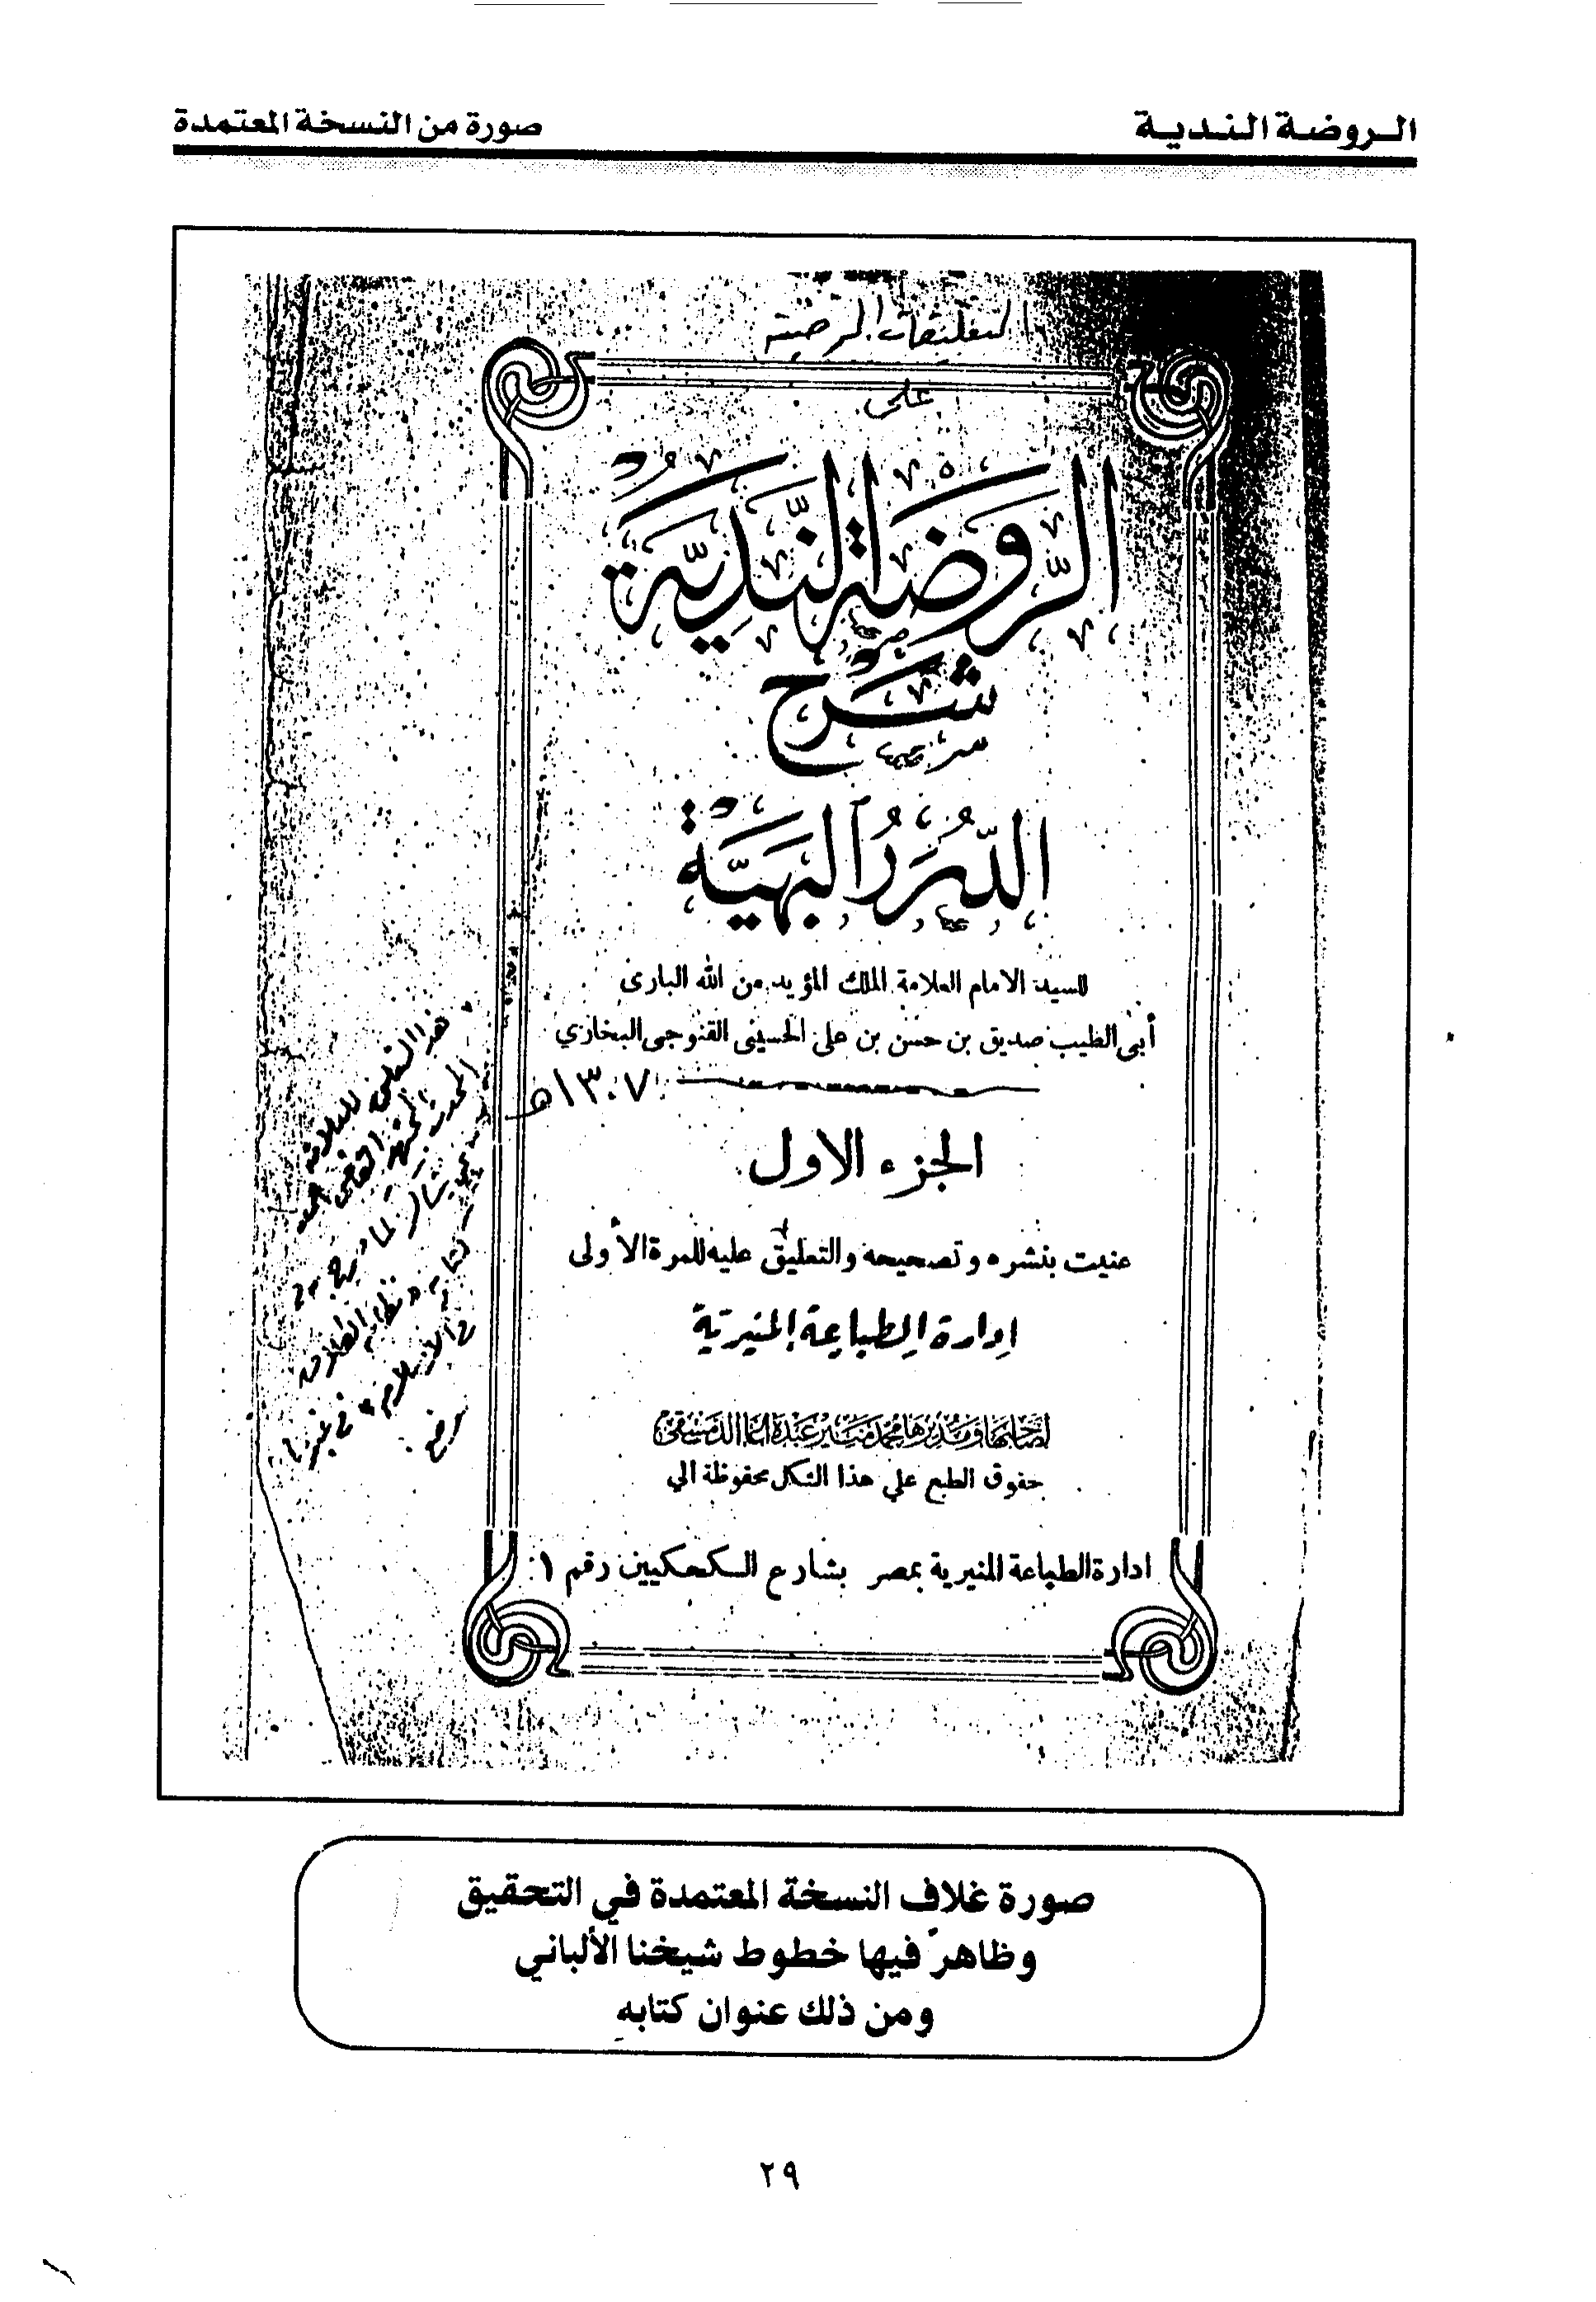 الروضة الندية
صورة من النسخة المعتمدة
التعليقات الرضية
على
الرَّوْضَةُ النَّدِيَّةُ
شَرْحُ
الدُّرَرُ الْبَهِيَّةُ
للسيد الامام العلامة الملك المؤيد من الله البارى
أبى الطيب صديق بن حسن بن على الحسينى القنوجى البخاري
١٣٠٧هـ
الجزء الاول
عنيت بنشره وتصحيحه والتعليق عليه للمرة الأولى
إدارة الطباعة المنيرية
لصاحبها ومديرها محمد منير عبده اغا الدمشقى
حقوق الطبع على هذا الشكل محفوظة الي
ادارة الطباعة المنيرية بمصر بشارع الكحكيين رقم ١
هذا التعليق للعلامة
المحدث
القاضى أحمد
شاكر
كتابه نظام الطلاق
الاسلام
صورة غلاف النسخة المعتمدة في التحقيق
وظاهرٌ فيها خطوط شيخنا الألباني
ومن ذلك عنوان كتابهِ
٢٩